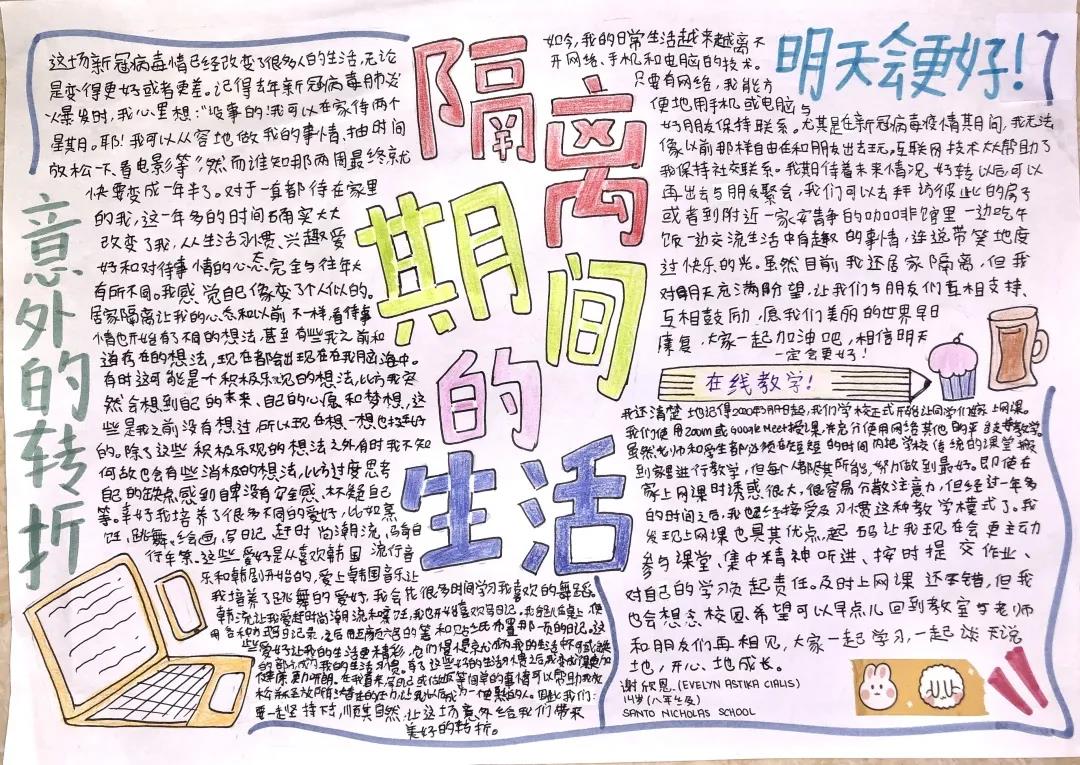 隔离
期间
的
生活
意外的转折
这场新冠病毒情已经改变了很多人的生活,无论
是变得更好或者更差。记得去年新冠病毒肺炎
爆发时,我心里想:"没事的!我可以在家待两个
星期。耶!我可以从容地做我的事情、抽时间
放松一下、看电影等"。然而谁知那两周最终就
快要变成一年半了。对于一直都待在家里
的我,这一年多的时间确实大大
改变了我,从生活习惯、兴趣爱
好和对待事情的心态,完全与往年大
有所不同。我感觉自己像变了个人似的。
居家隔离让我的心态和以前不一样,看待事
情也开始有了不同的想法,甚至有些我之前和
造存在的想法,现在都会出现在我脑海中。
有时这可能是个积极乐观的想法,比方我突
然会想到自己的未来、自己的心愿和梦想,这
些是我之前没有想过,所以现在想一想也挺好
的。除了这些积极乐观的想法之外有时我不知
何故也会有些消极的想法,比方过度思考
自己的缺点感到自卑没有安全感、怀疑自己
等。幸好我培养了很多不同的爱好,比如烹
饪,跳舞、绘画、写日记、赶时尚潮流,骑自
行车等。这些爱好是从喜欢韩国流行音
乐和韩剧开始的,爱上韩国音乐让
我培养了跳舞的爱好,我会花很多时间学习我喜欢的舞蹈。
韩流让我爱赶时尚潮流和烹饪,我也开始喜欢写日记。
要一起坚持下去,顺其自然,让这场意外给我们带来
美好的转折。
明天会更好!
如今,我的日常生活越来越离不
开网络、手机和电脑的技术。
只要有网络,我能方
便地用手机或电脑与
好朋友保持联系。尤其是在新冠病毒疫情期间,我无法
像以前那样自由在和朋友出去玩,互联网技术大大帮助了
我保持社交联系。我期待着未来情况好转以后可以
再出去与朋友聚会,我们可以去拜访彼此的房子
或者到附近一家安静的咖啡馆里一边吃午
饭一边交流生活中有趣的事情,连说带笑地度
过快乐的光。虽然目前我还居家隔离,但我
对明天充满盼望,让我们与朋友们互相支持、
互相鼓励,愿我们美丽的世界早日
康复,大家一起加油吧,相信明天
一定会更好!
在线教学!
我还清楚地记得2020年3月17日起,我们学校正式开始让同学们在家上网课。
我们使用Zoom或Google Meet授课,并充分使用网络其他的平台支持教学。
虽然老师和学生都必须在短短的时间内把学校传统的课堂搬
到家里进行教学,但每人都尽其所能,努力做到最好。即使在
家上网课时诱惑很大,很容易分散注意力,但经过一年多
的时间之后,我已经接受及习惯这种教学模式了。我
发现上网课也具其优点,起码让我现在会更主动
参与课堂、集中精神听进、按时提交作业、
对自己的学习负起责任。及时上网课还不错,但我
也会想念校园,希望可以早点儿回到教室与老师
和朋友们再相见,大家一起学习,一起谈天说
地,开心地成长。
谢欣恩 (EVELYN ASTIKA CIALIS)
14岁(八年级)
SANTO NICHOLAS SCHOOL